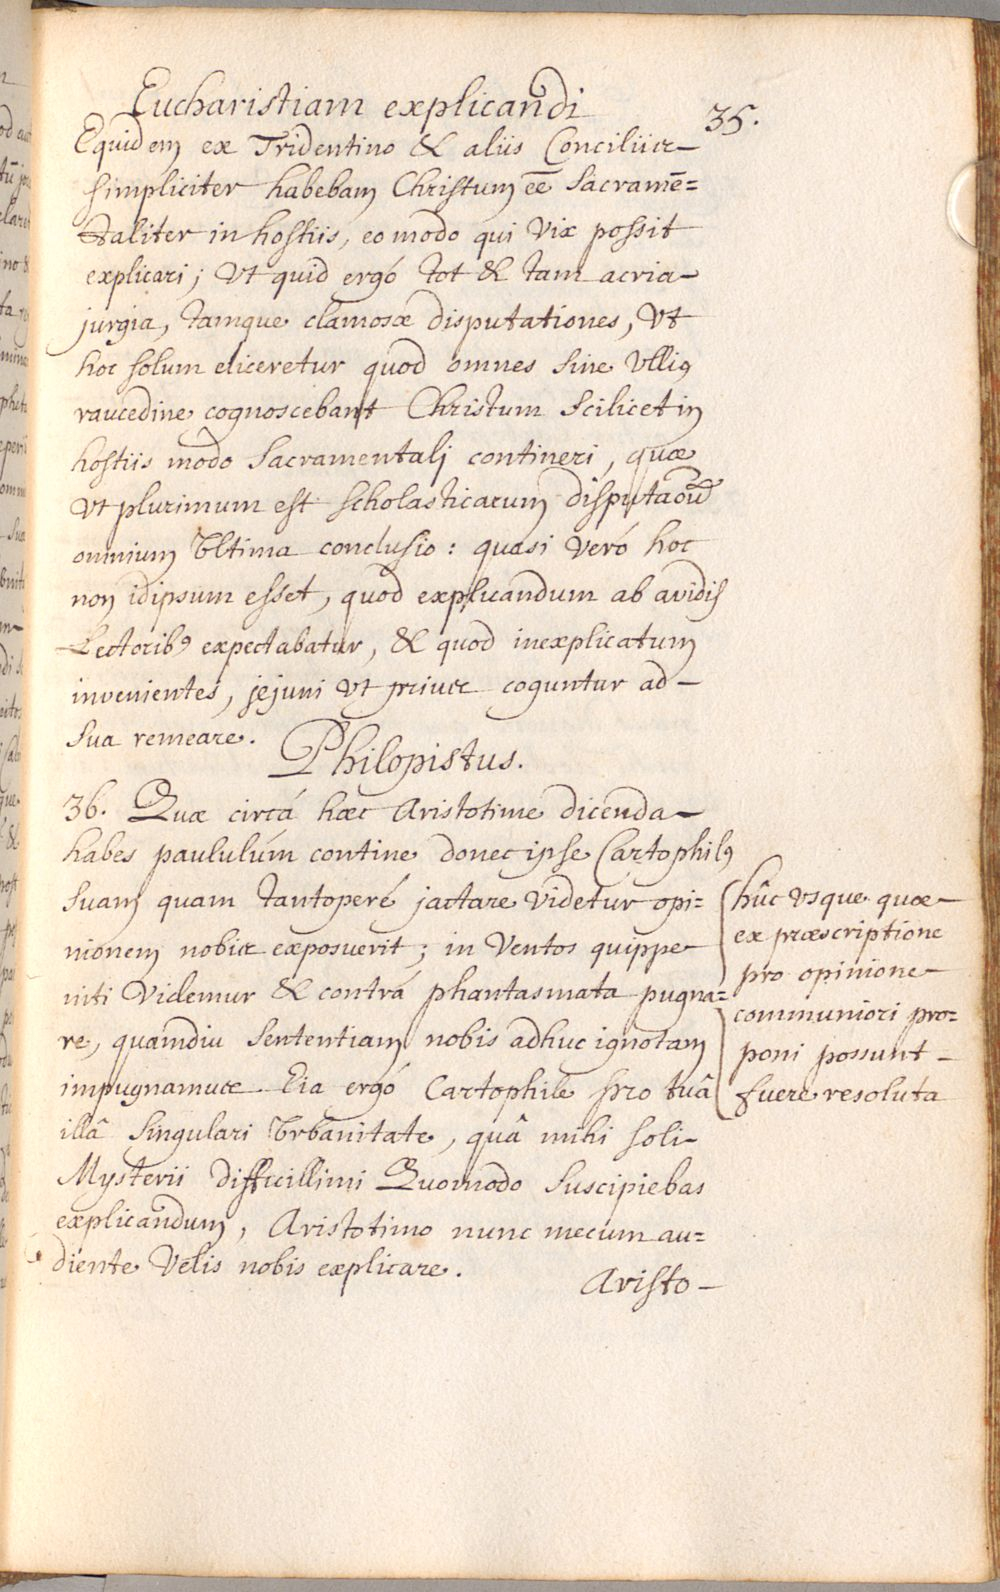 Eucharistiam explicandi
35.
Equidem ex Tridentino & aliis Conciliis
simpliciter habebam Christum eē Sacramē=
taliter in hostiis, eo modo qui vix possit
explicari; Vt quid ergó tot & tam acria
jurgia, tamque clamosæ disputationes, Vt
hoc solum eliceretur quod omnes sine Vlliꝰ
raucedine cognoscebant Christum scilicet in
hostiis modo Sacramentali contineri, quæ
Vt plurimum est scholasticarum disputaōū
omnium Vltima conclusio: quasi veró hoc
non idipsum esset, quod explicandum ab avidis
Lectoribꝰ expectabatur, & quod inexplicatum
invenientes, jejuni Vt prius coguntur ad
sua remeare.
Philopistus.
36. Quæ circá hæc Aristotime dicenda
habes paululúm contine donec ipse Cartophilꝰ
suam quam tantoperé jactare videtur opi=
nionem nobis exposuerit; in Ventos quippe
niti Videmur & contrá phantasmata pugna=
re, quamdiu sententiam nobis adhuc ignotam
impugnamus. Eia ergó Cartophile pro tuâ
illâ singulari Vrbanitate, quâ mihi soli
Mysterii difficillimi Quomodo suscipiebas
explicandum, Aristotimo nunc mecum au=
diente Velis nobis explicare.
Aristo-
hûc vsque quæ
ex præscriptione
pro opinione
communiori pro=
poni possunt
fuere resoluta